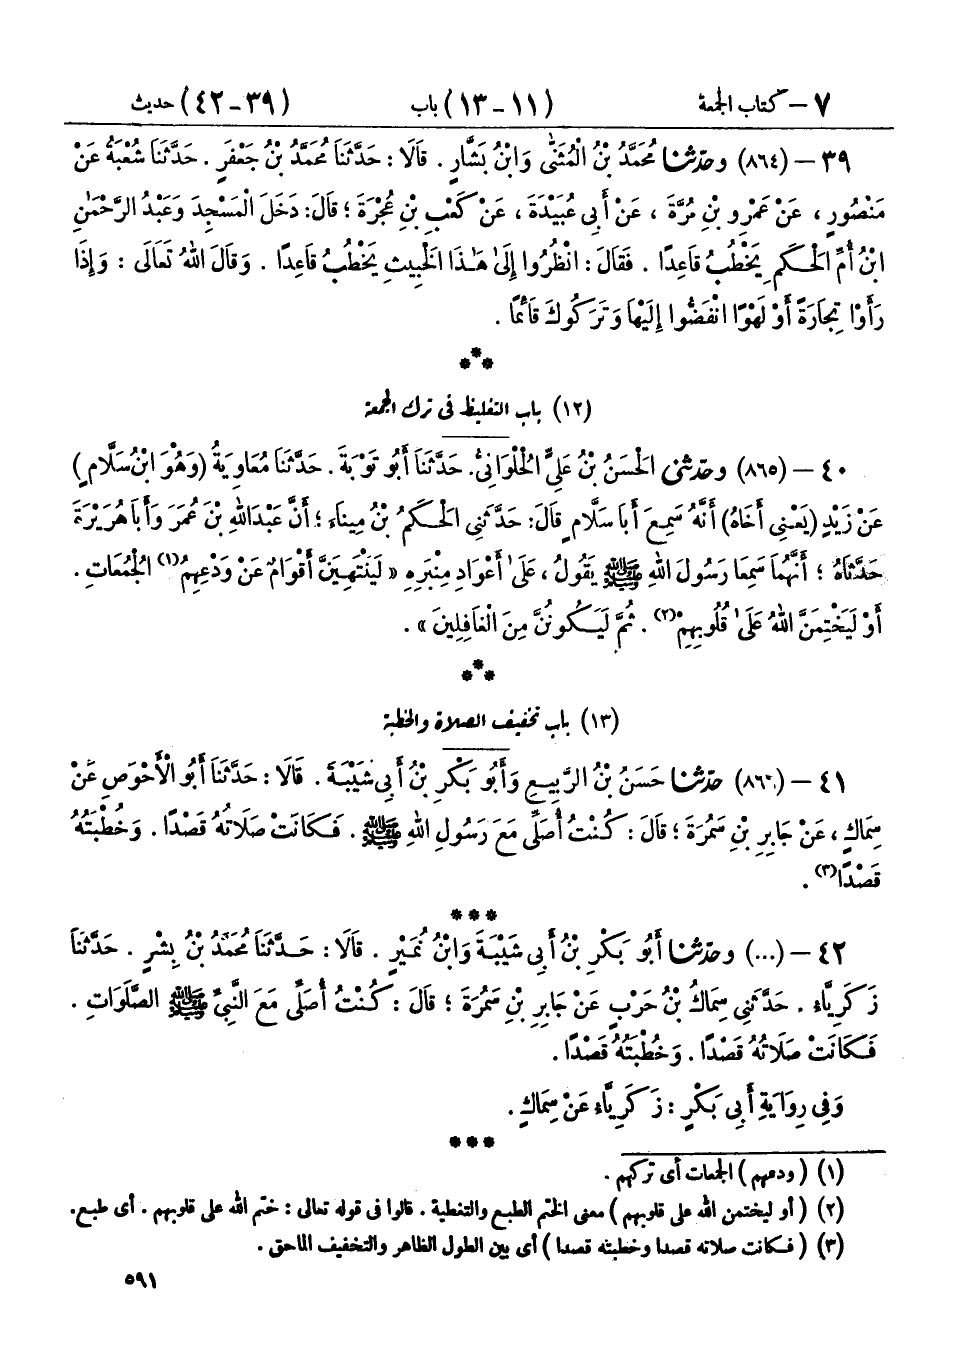 ٧ – كتاب الجمعة (١١ – ١٣) باب (٣٩ – ٤٢) حديث
٣٩ – (٨٦٤) وحَدَّثَنَا مُحَمَّدُ بْنُ الْمُثَنَّىٰ وَابْنُ بَشَّارٍ . قَالَا : حَدَّثَنَا مُحَمَّدُ بْنُ جَعْفَرٍ . حَدَّثَنَا شُعْبَةُ عَنْ
مَنْصُورٍ ، عَنْ عَمْرِو بْنِ مُرَّةَ ، عَنْ أَبِي عُبَيْدَةَ ، عَنْ كَعْبِ بْنِ عُجْرَةَ ؛ قَالَ : دَخَلَ الْمَسْجِدَ وَعَبْدُ الرَّحْمٰنِ
ابْنُ أُمِّ الْحَكَمِ يَخْطُبُ قَاعِدًا . فَقَالَ : انْظُرُوا إِلَىٰ هٰذَا الْخَبِيثِ يَخْطُبُ قَاعِدًا . وَقَالَ اللهُ تَعَالَى : وَإِذَا
رَأَوْا تِجَارَةً أَوْ لَهْوًا انْفَضُّوا إِلَيْهَا وَتَرَكُوكَ قَائِمًا .
***
(١٢) باب التغليظ فى ترك الجمعة
٤٠ – (٨٦٥) وحَدَّثَنِي الْحَسَنُ بْنُ عَلِيٍّ الْحُلْوَانِيُّ. حَدَّثَنَا أَبُو تَوْبَةَ . حَدَّثَنَا مُعَاوِيَةُ (وَهُوَ ابْنُ سَلَّامٍ)
عَنْ زَيْدٍ (يَعْنِي أَخَاهُ) أَنَّهُ سَمِعَ أَبَا سَلَّامٍ قَالَ: حَدَّثَنِي الْحَكَمُ بْنُ مِينَاءَ ؛ أَنَّ عَبْدَاللهِ بْنَ عُمَرَ وَأَبَا هُرَيْرَةَ
حَدَّثَاهُ ؛ أَنَّهُمَا سَمِعَا رَسُولَ اللهِ ﷺ يَقُولُ ، عَلَىٰ أَعْوَادِ مِنْبَرِهِ « لَيَنْتَهِيَنَّ أَقْوَامٌ عَنْ وَدْعِهِمُ(١) الْجُمُعَاتِ .
أَوْ لَيَخْتِمَنَّ اللهُ عَلَىٰ قُلُوبِهِمْ(٢) . ثُمَّ لَيَكُونُنَّ مِنَ الْغَافِلِينَ » .
***
(١٣) باب تخفيف الصلاة والخطبة
٤١ – (٨٦٦) حَدَّثَنَا حَسَنُ بْنُ الرَّبِيعِ وَأَبُو بَكْرِ بْنُ أَبِي شَيْبَةَ . قَالَا : حَدَّثَنَا أَبُو الْأَحْوَصِ عَنْ
سِمَاكٍ ، عَنْ جَابِرِ بْنِ سَمُرَةَ ؛ قَالَ : كُنْتُ أُصَلِّي مَعَ رَسُولِ اللهِ ﷺ . فَكَانَتْ صَلَاتُهُ قَصْدًا . وَخُطْبَتُهُ
قَصْدًا(٣) .
***
٤٢ – (...) وحَدَّثَنَا أَبُو بَكْرِ بْنُ أَبِي شَيْبَةَ وَابْنُ نُمَيْرٍ . قَالَا : حَدَّثَنَا مُحَمَّدُ بْنُ بِشْرٍ . حَدَّثَنَا
زَكَرِيَّاءُ . حَدَّثَنِي سِمَاكُ بْنُ حَرْبٍ عَنْ جَابِرِ بْنِ سَمُرَةَ ؛ قَالَ : كُنْتُ أُصَلِّي مَعَ النَّبِيِّ ﷺ الصَّلَوَاتِ .
فَكَانَتْ صَلَاتُهُ قَصْدًا . وَخُطْبَتُهُ قَصْدًا .
وَفِي رِوَايَةِ أَبِي بَكْرٍ : زَكَرِيَّاءُ عَنْ سِمَاكٍ .
***
(١) ( ودعهم ) الجمعات أى تركهم .
(٢) ( أو ليختمن الله على قلوبهم ) معنى الختم الطبع والتغطية . قالوا فى قوله تعالى : ختم الله على قلوبهم . أى طبع.
(٣) ( فكانت صلاته قصدا وخطبته قصدا ) أى بين الطول الظاهر والتخفيف الماحق .
٥٩١